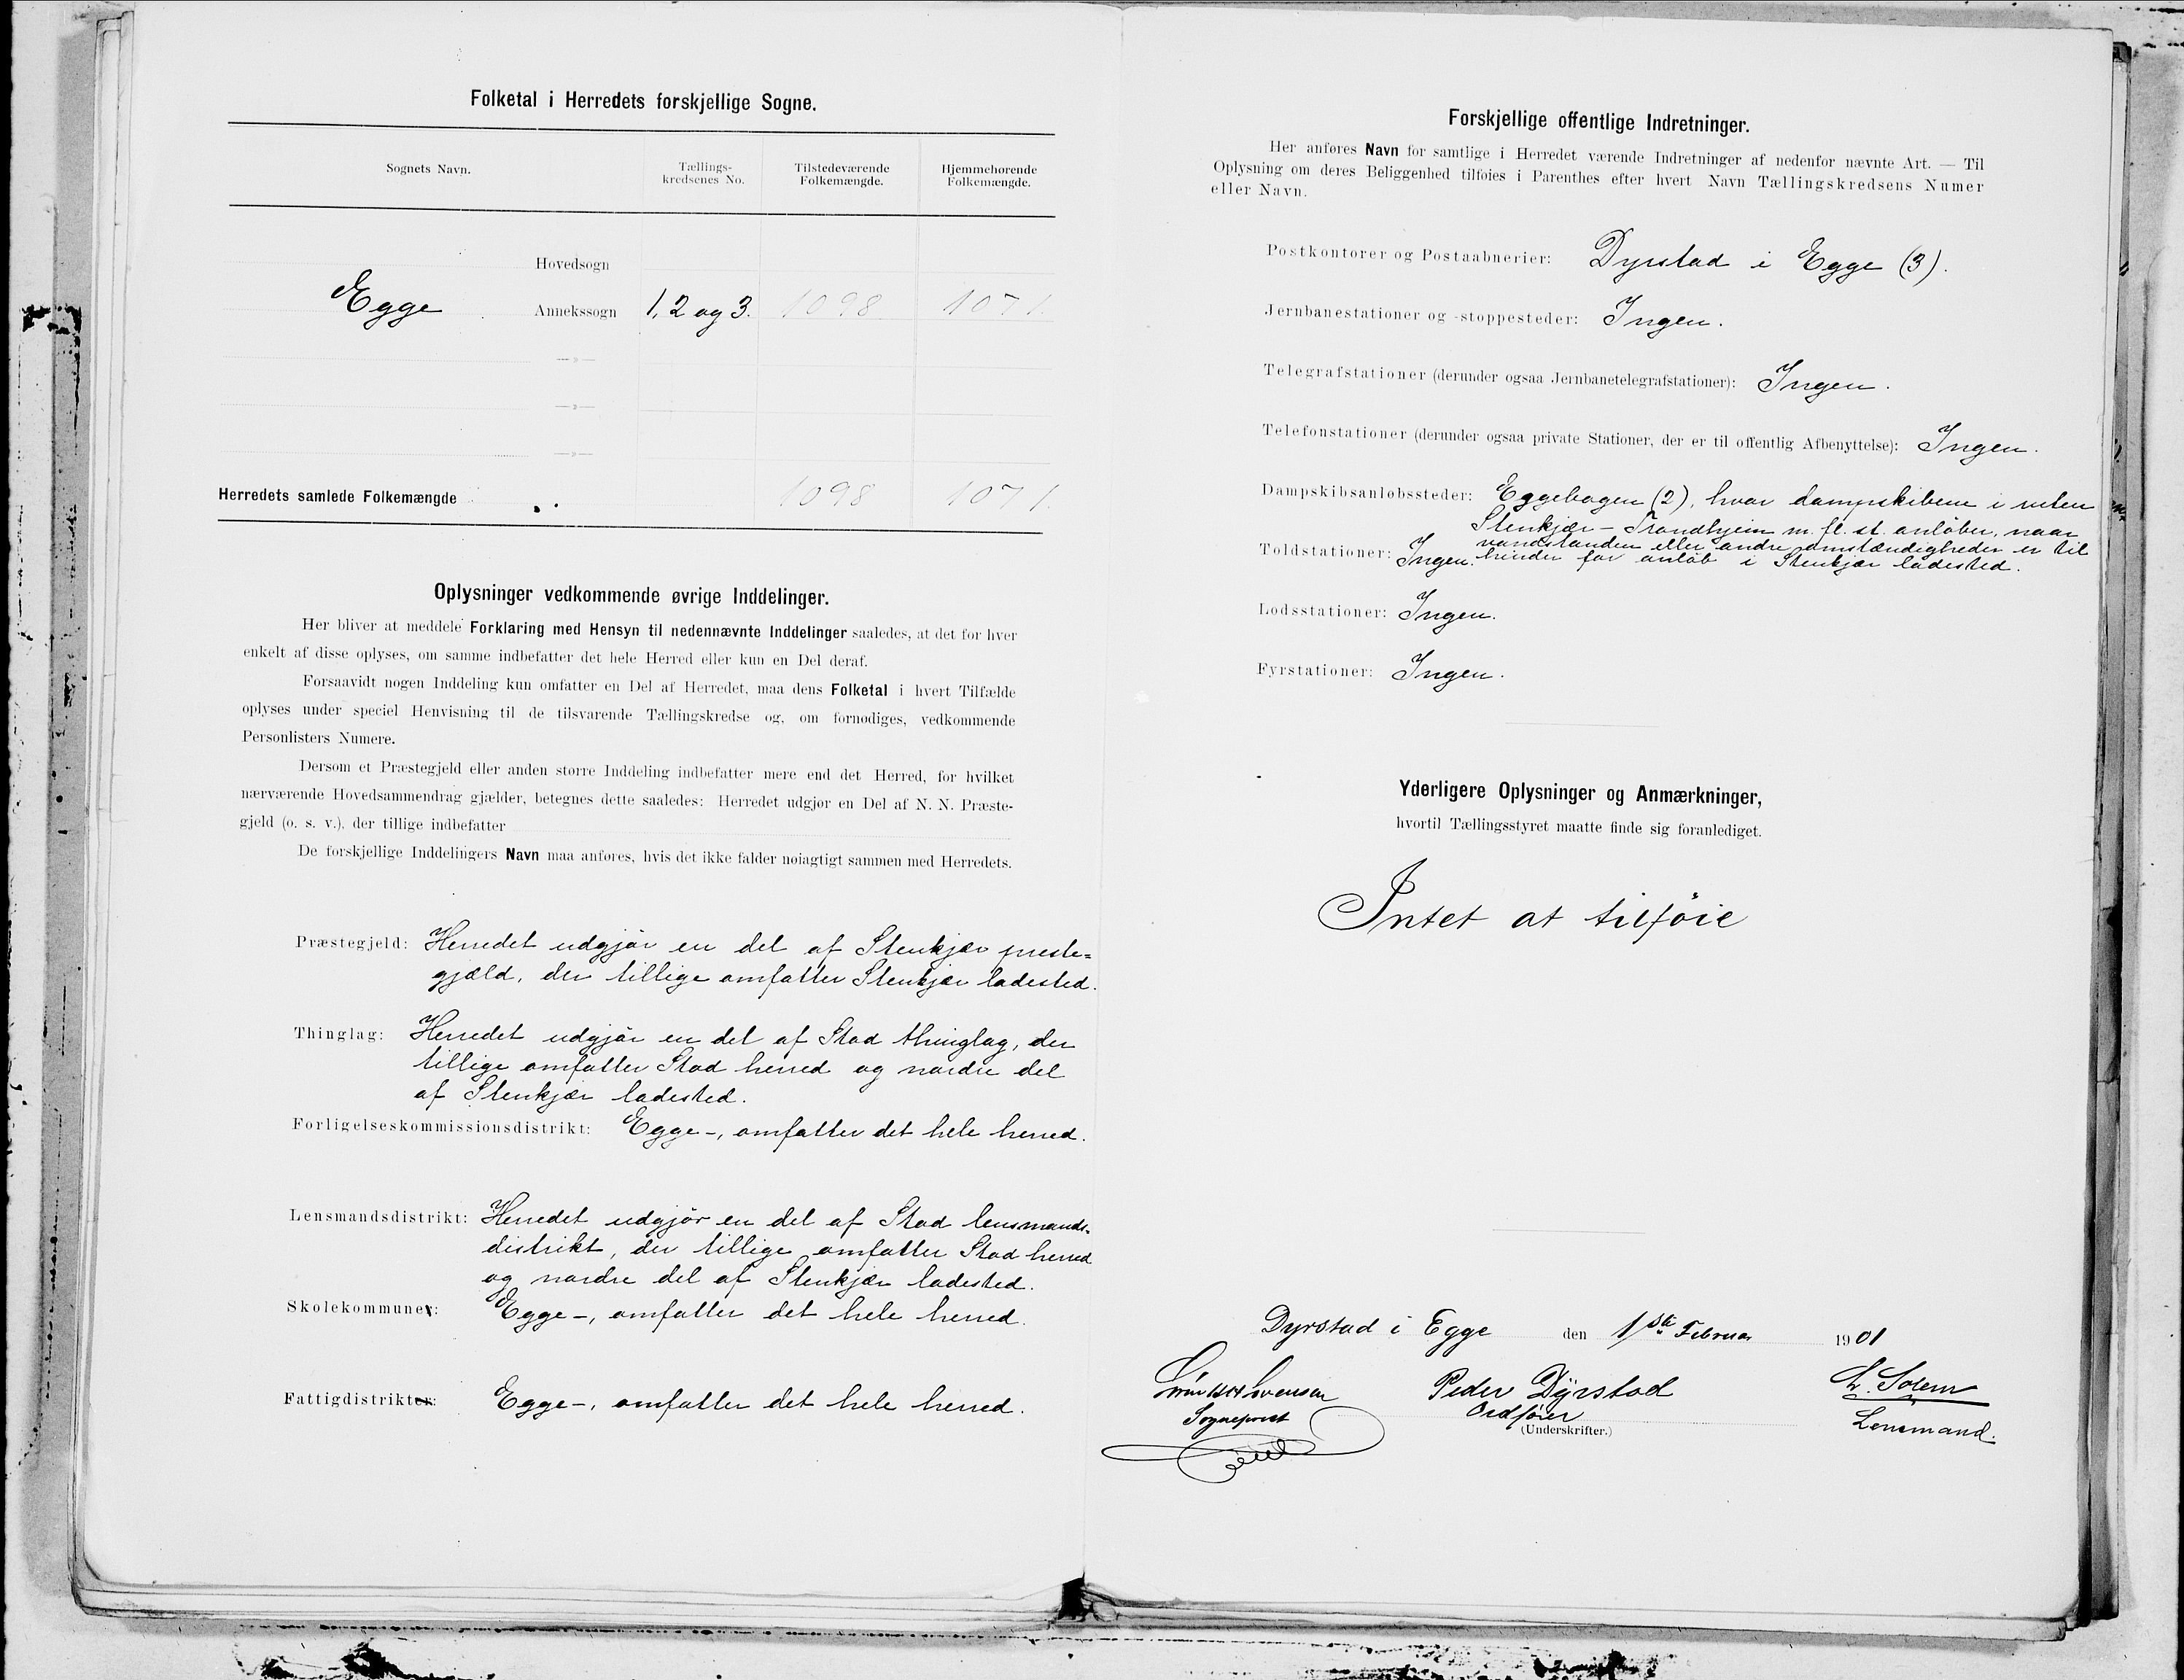 Folketal i Herredets forskjellige Sogne.
Sognets Navn. Tællings-kredsenes No. Tilstedeværende Folkemængde. Hjemmehørende Folkemængde.
Hovedsogn
Egge Annekssogn 1, 2 og 3. 1098 1071.
—»—
—»—
—»—
Herredets samlede Folkemængde 1098 1071.
Oplysninger vedkommende øvrige Inddelinger.
Her bliver at meddele Forklaring med Hensyn til nedennævnte Inddelinger saaledes, at det for hver
enkelt af disse oplyses, om samme indbefatter det hele Herred eller kun en Del deraf.
Forsaavidt nogen Inddeling kun omfatter en Del af Herredet, maa dens Folketal i hvert Tilfælde
oplyses under speciel Henvisning til de tilsvarende Tællingskredse og, om fornødiges, vedkommende
Personlisters Numere.
Dersom et Præstegjeld eller anden større Inddeling indbefatter mere end det Herred, for hvilket
nærværende Hovedsammendrag gjælder, betegnes dette saaledes: Herredet udgjør en Del af N. N. Præste-
gjeld (o. s. v.), der tillige indbefatter
De forskjellige Inddelingers Navn maa anføres, hvis det ikke falder nøiagtigt sammen med Herredets.
Præstegjeld: Herredet udgjør en del af Stenkjær preste=
gjæld, der tillige omfatter Stenkjær ladested.
Thinglag: Herredet udgjør en del af Stod thinglag, der
tillige omfatter Stod herred og nordre del
af Stenkjær ladested.
Forligelseskommissionsdistrikt: Egge-, omfatter det hele herred.
Lensmandsdistrikt: Herredet udgjør en del af Stod lensmands-
distrikt, der tillige omfatter Stod herred
og nordre del af Stenkjær ladested.
Skolekommuner: Egge-, omfatter det hele herred.
Fattigdistrikter: Egge-, omfatter det hele herred.
Forskjellige offentlige Indretninger.
Her anføres Navn for samtlige i Herredet værende Indretninger af nedenfor nævnte Art. — Til
Oplysning om deres Beliggenhed tilføies i Parenthes efter hvert Navn Tællingskredsens Numer
eller Navn.
Postkontorer og Postaabnerier: Dyrstad i Egge (3).
Jernbanestationer og -stoppesteder: Ingen.
Telegrafstationer (derunder ogsaa Jernbanetelegrafstationer): Ingen.
Telefonstationer (derunder ogsaa private Stationer, der er til offentlig Afbenyttelse): Ingen.
Dampskibsanløbssteder: Eggebogen (2), hvor dampskibene i ruten
Stenkjær – Trondhjem m. fl. st. anløber, naar
vandstanden eller andre omstændigheder er til
hinder for anløb i Stenkjær ladested.
Toldstationer: Ingen.
Lodsstationer: Ingen.
Fyrstationer: Ingen.
Yderligere Oplysninger og Anmærkninger,
hvortil Tællingsstyret maatte finde sig foranlediget.
Intet at tilføie
Dyrstad i Egge den 1ste Februar 1901
Peder Dyrstad L. Solem
Sogneprest Ordfører Lensmand.
(Underskrifter.)